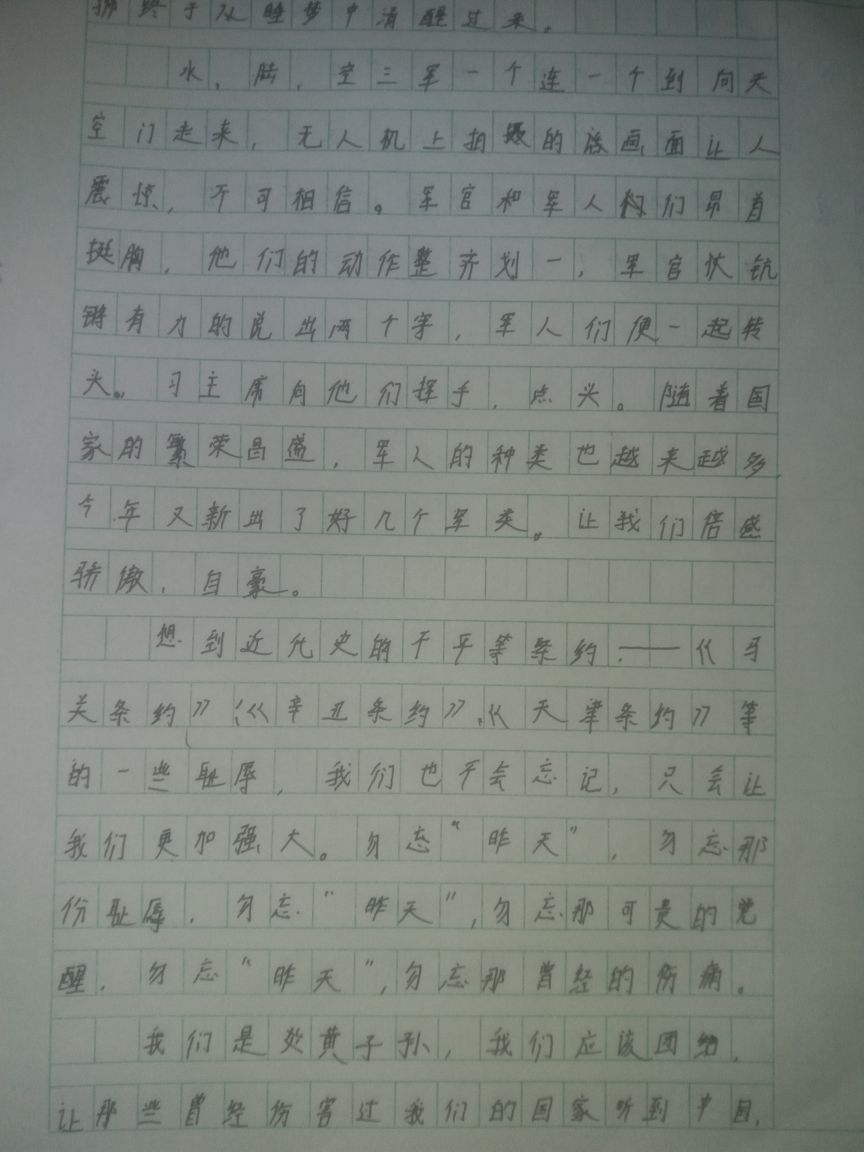 狮终于从睡梦中清醒过来。
水,陆,空三军一个连一个到向天
空门走来,无人机上拍摄的该画面让人
震惊,不可相信。军官和军人们昂首
挺胸,他们的动作整齐划一,军官伏铿
锵有力的说出两个字,军人们便一起转
头。习主席向他们挥手,点头。随着国
家的繁荣昌盛,军人的种类也越来越多,
今年又新出了好几个军类。让我们倍感
骄傲,自豪。
想到近代史的不平等条约——《马
关条约》《辛丑条约》、《天津条约》等
的一些耻辱,我们也不会忘记,只会让
我们更加强大。勿忘“昨天”,勿忘那
份耻辱,勿忘“昨天”,勿忘那可贵的觉
醒,勿忘“昨天”,勿忘那曾经的伤痛。
我们是炎黄子孙,我们应该团结,
让那些曾经伤害过我们的国家听到中国,